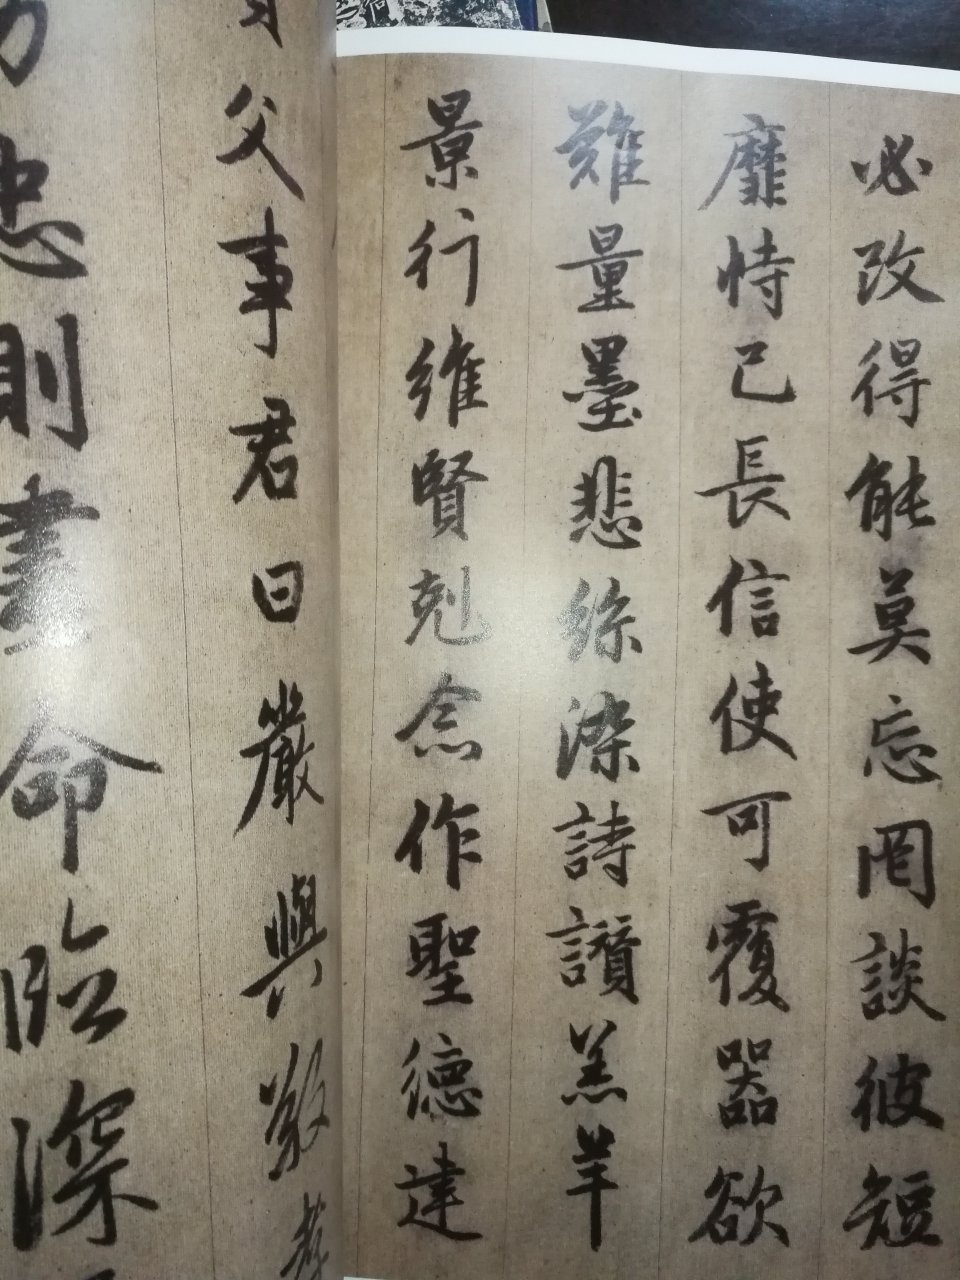 必改得能莫忘罔談彼短
靡恃己長信使可覆器欲
難量墨悲絲染詩讃羔羊
景行維賢剋念作聖德達
父事君曰嚴與敬孝
忠則盡命臨深